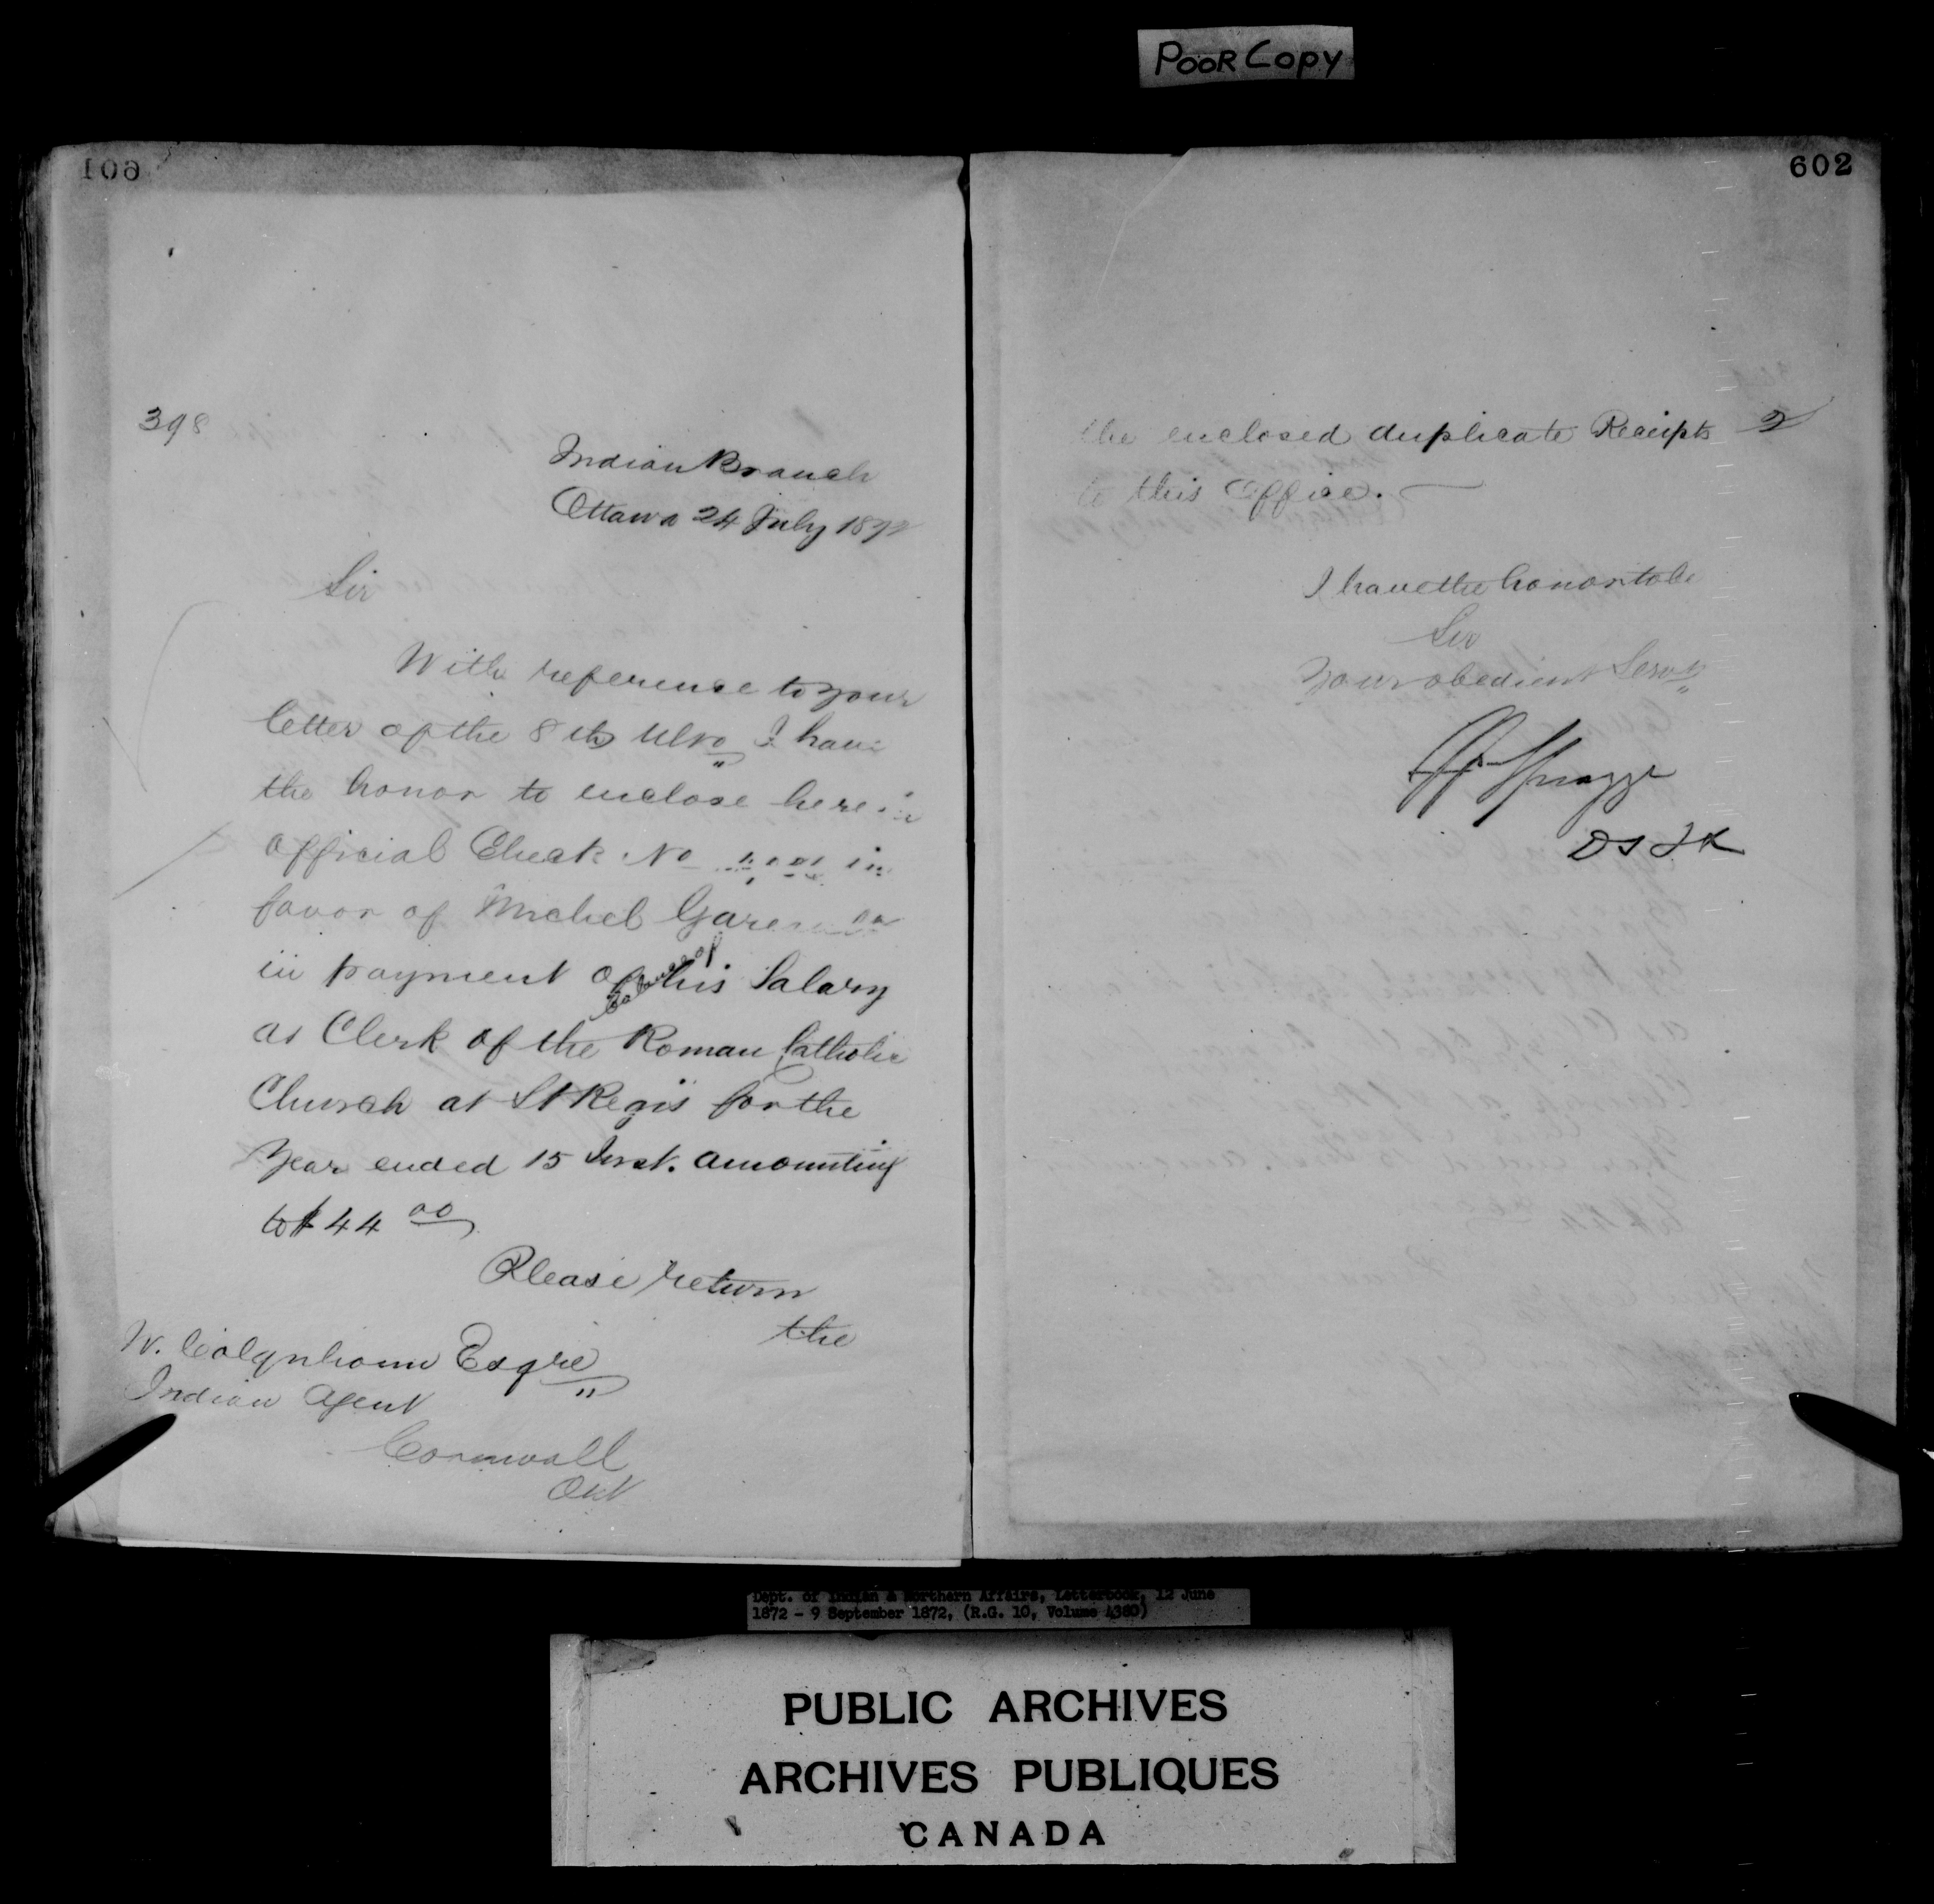 POOR Copy
601
602
398
Indian Branch
Ottawa 24 July 1872
Sir
With reference to your
letter of the 8th Ulto I have
the honor to enclose herein
official Check No in
favor of Michel
in payment of balance of his Salary
as Clerk of the Roman Catholic
Church at St Regis for the
Year ended 15 Inst. amounting
to $44 00
Please return
the
W. Colquhoun Esqre
Indian Agent
Cornwall
Ont
the enclosed duplicate Receipts 2
to this Office.
I have the honor to be
Sir
Your obedient Servt
Spragge
DSIA
Dept. of Indian & Northern Affairs, Letterbook, 12 June
1872 - 9 September 1872, (R.G. 10, Volume 4380)
PUBLIC ARCHIVES
ARCHIVES PUBLIQUES
CANADA